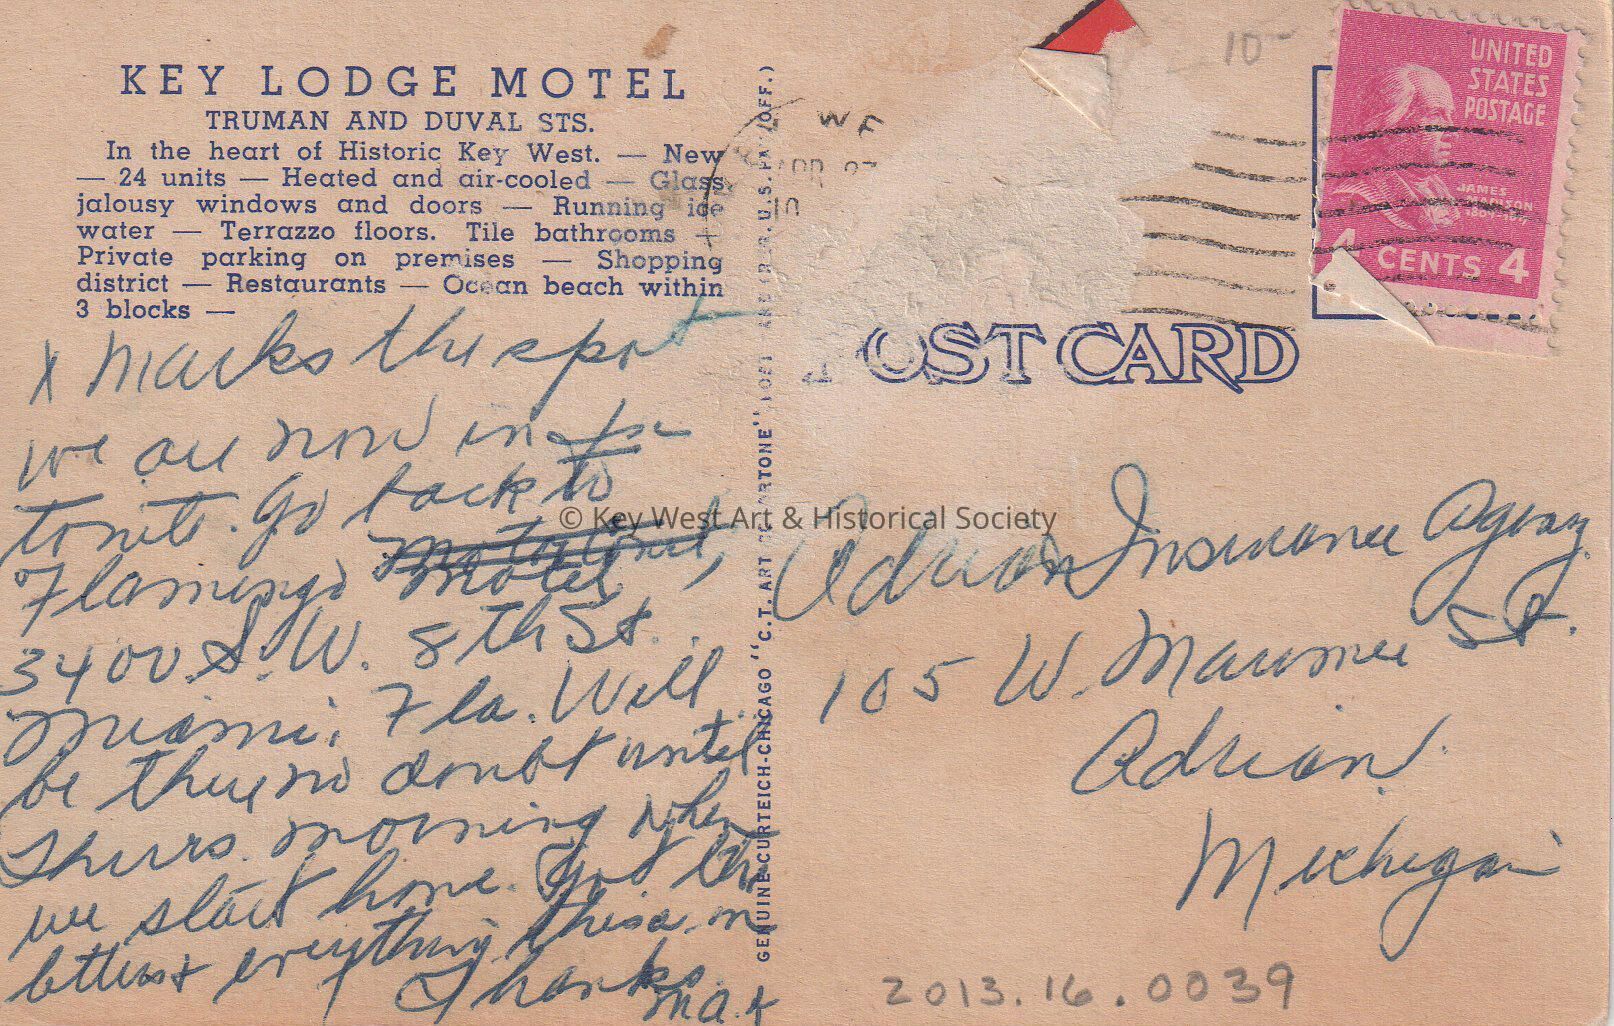 KEY LODGE MOTEL
TRUMAN AND DUVAL STS.
In the heart of Historic Key West. — New
— 24 units — Heated and air-cooled — Glass
jalousy windows and doors — Running ice
water — Terrazzo floors. Tile bathrooms —
Private parking on premises — Shopping
district — Restaurants — Ocean beach within
3 blocks —
X Marks the spot
we are now in for
tonite. Go back to
Flamingo Motel
3400 S.W. 8th St.
Miami, Fla. Will
be there no doubt until
Thurs. morning when
we start home. Got the
letters & everything this a.m
Thanks
GENUINE CURTEICH-CHICAGO "C.T. ART
POST CARD
UNITED
STATES
POSTAGE
JAMES
4 CENTS 4
10
© Key West Art & Historical Society
Adrian Insurance Agency
105 W. Maumee St.
Adrian
Michigan
2013.16.0039